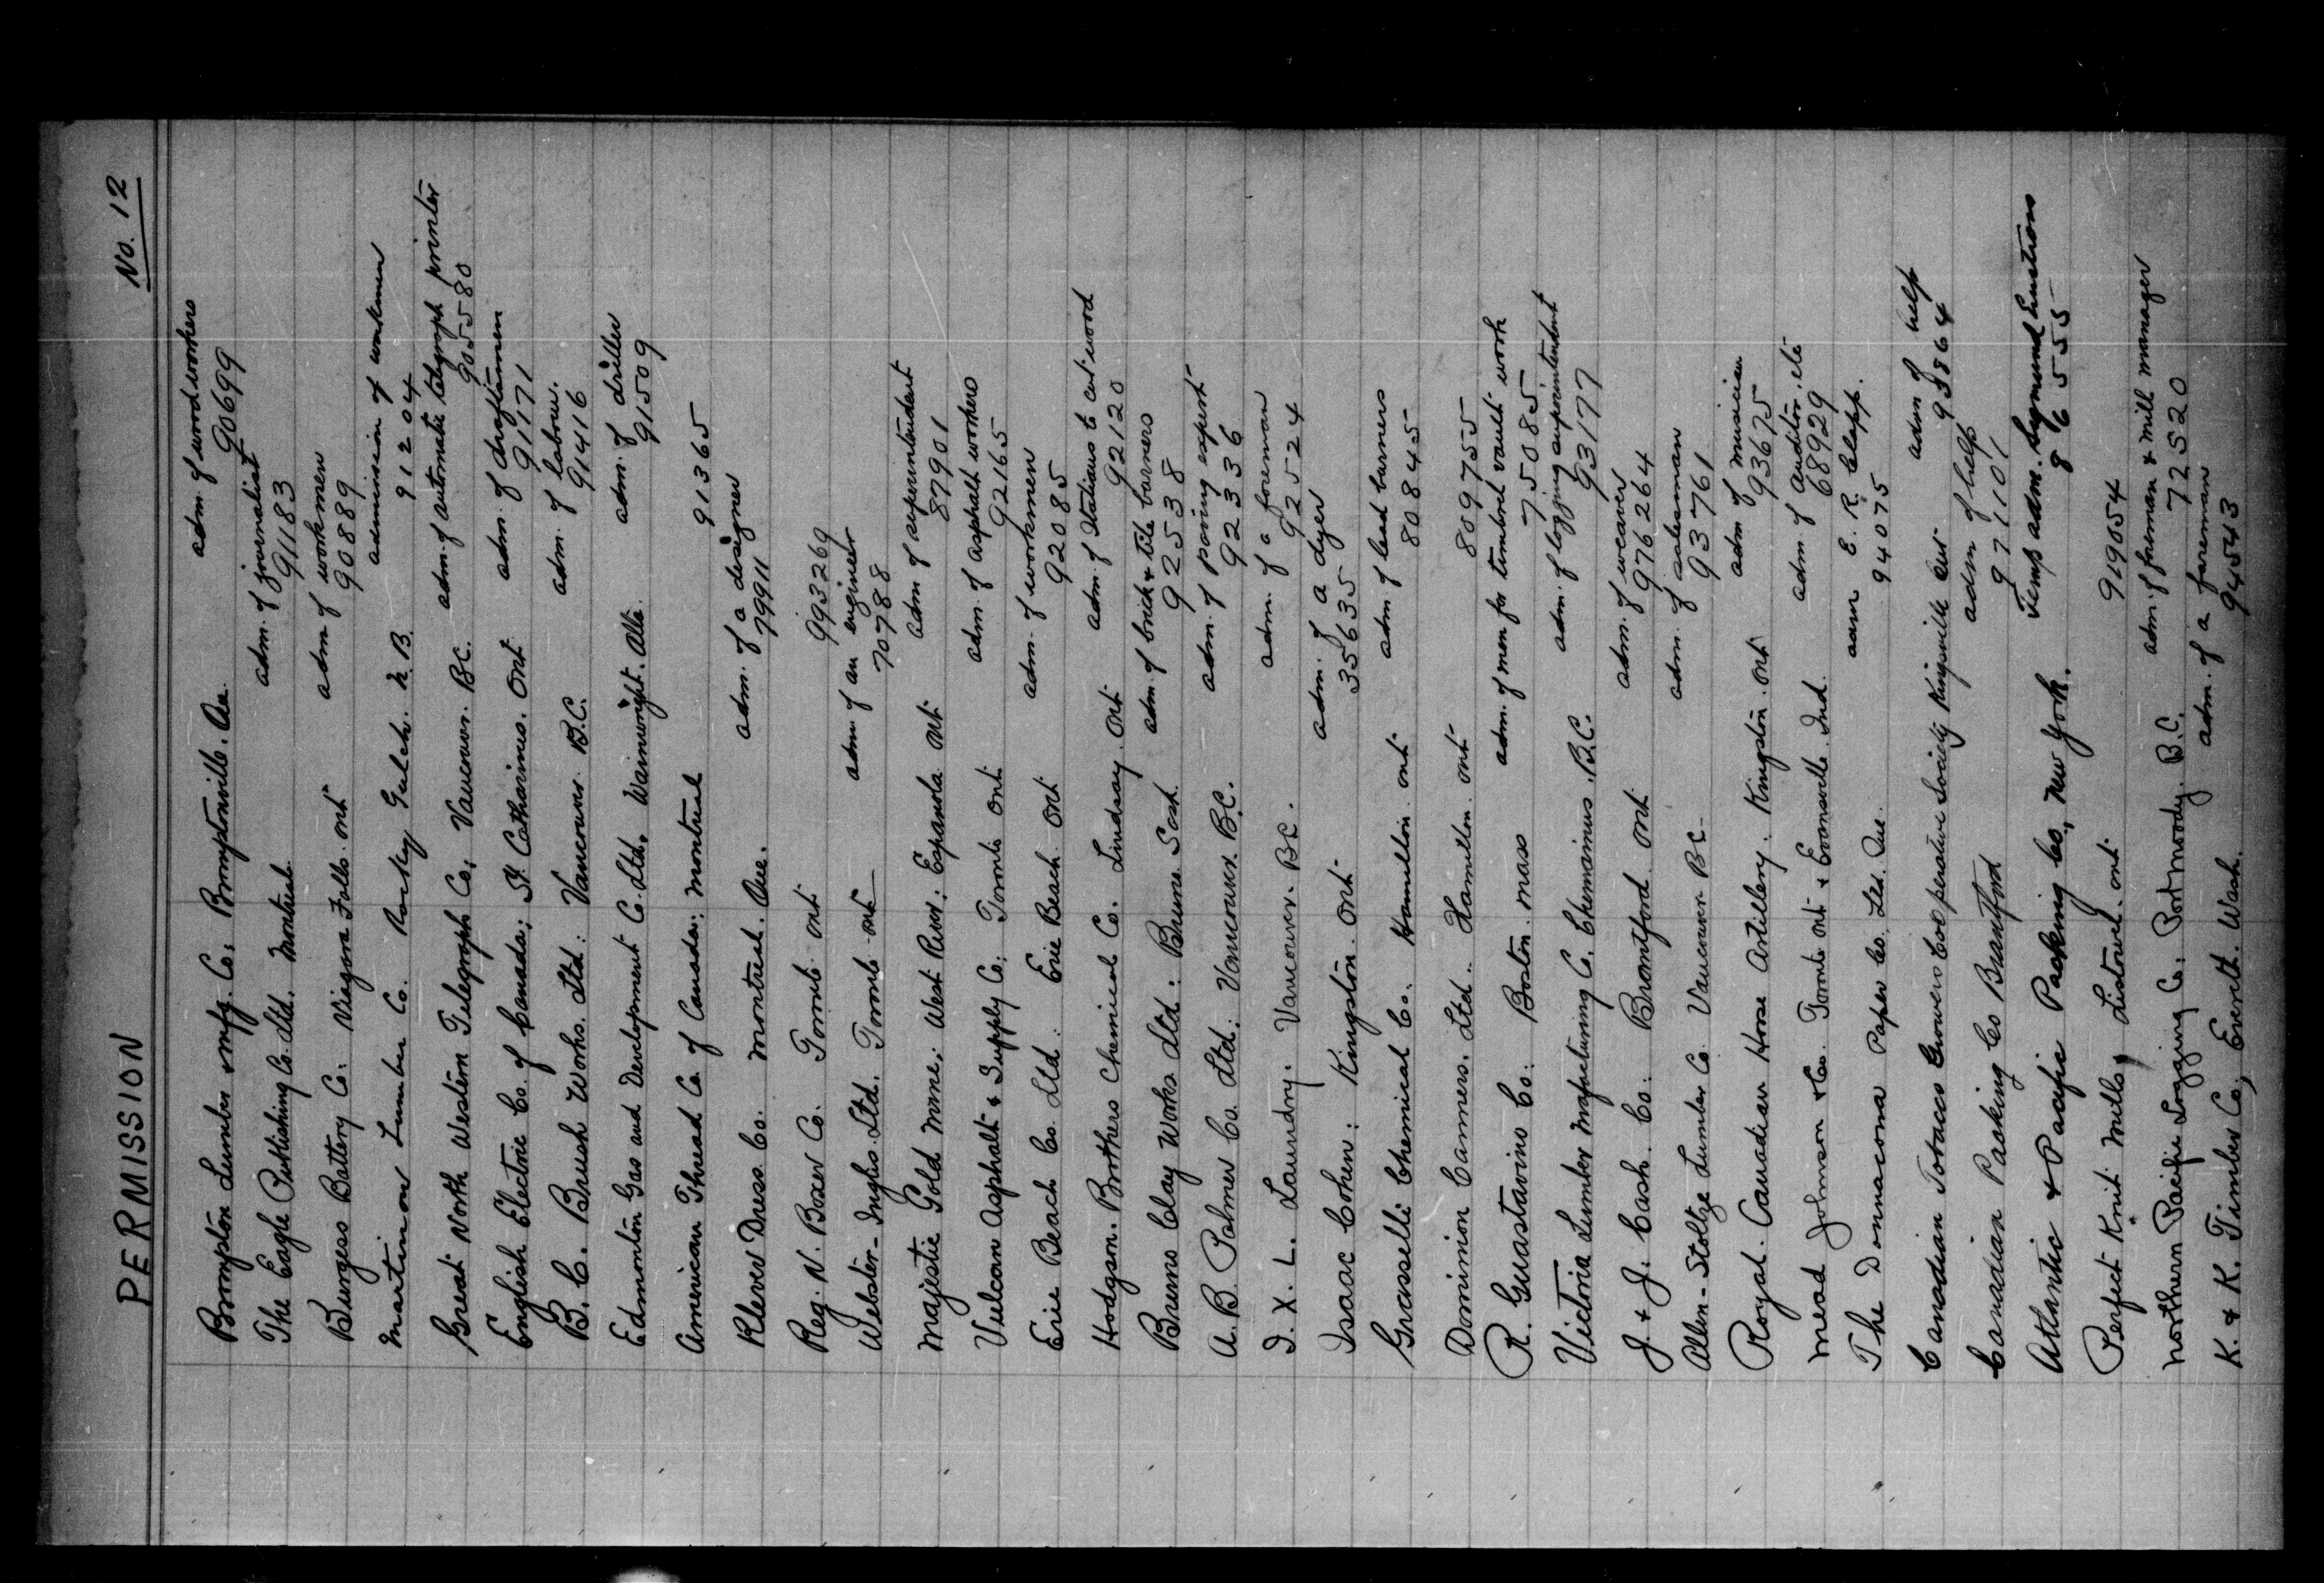 PERMISSION No. 12
Brompton Lumber & Mfg. Co. Bromptonville. Que. adm. of woodworkers
90699
The Eagle Publishing Co. Ltd. Montreal. adm. of journalist
91183
Burgess Battery Co: Niagara Falls. Ont adm of workmen
90889
Martinon Lumber Co. Rocky Gulch. N.B. admission of workmen
91204
Great North Western Telegraph Co, Vancouver. B.C. adm. of automatic telegraph printer
905580
English Electric Co. of Canada; St. Catharines. Ont adm. of draftsmen
91171
B.C. Brush Works. Ltd: Vancouver B.C. adm. of labour.
91416
Edmonton Gas and Development C. Ltd. Wainwright. Alta. adm. of driller
91509
American Thread Co. of Canada: Montreal 91365
Klever Dress Co. Montreal. Que. adm. of a designer
79911
Reg. N. Boxer Co. Toronto Ont 993269
Webster-Inglis Ltd. Toronto Ont adm. of an engineer
70788
Majestic Gold Mine; West River; Espanola Ont. adm of superintendent
87901
Vulcan Asphalt & Supply Co; Toronto Ont adm. of asphalt workers
92165
Erie Beach Co. Ltd. Erie Beach Ont adm. of workmen
92085
Hodgson. Brothers Chemical Co. Lindsay. Ont adm. of Italians to cut wood
92120
Bruno Clay Works. Ltd: Bruno. Sask. adm. of brick & tile burners
92538
A.B. Palmer Co. Ltd: Vancouver. B.C. adm. of paving expert
92336
I.X.L. Laundry. Vancouver. BC. adm. of a foreman
92524
Isaac Cohen: Kingston. Ont. adm. of a dyer
35635
Grasselli Chemical Co. Hamilton. Ont adm. of lead burners
80845
Dominion Canners. Ltd. Hamilton. Ont 809755
R. Guastavino Co. Boston. Mass adm. of men for timbrel vault work
75085
Victoria Lumber Mafacturing C. Chemainus. B.C. adm. of logging superintendent
93177
J. & J. Cash. Co: Brantford Ont adm. of weaver
976264
Allen-Stoltze Lumber Co. Vancouver BC adm. of salesman
93761
Royal. Canadian Horse Artillery. Kingston. Ont adm of musician
93675
Mead Johnson & Co. Toronto Ont & Evansville. Ind. adm. of auditor. etc
68929
The Donnacona Paper Co. Ltd. Que. E.R. Clapp.
94075
Canadian Tobacco Growers Cooperative Society Kingsville Ont adm of help
93864
Canadian Packing Co Brantford adm of help
971101
Atlantic & Pacific Packing Co., New York. Temp adm. Sigmund
86555
Perfect Knit Mills, Listowel. Ont 919054
Northern Pacific Logging C. Port Moody. B.C. adm. of foreman & mill manager
72520
K. & K. Timber Co; Everett. Wash. adm. of a foreman
94543